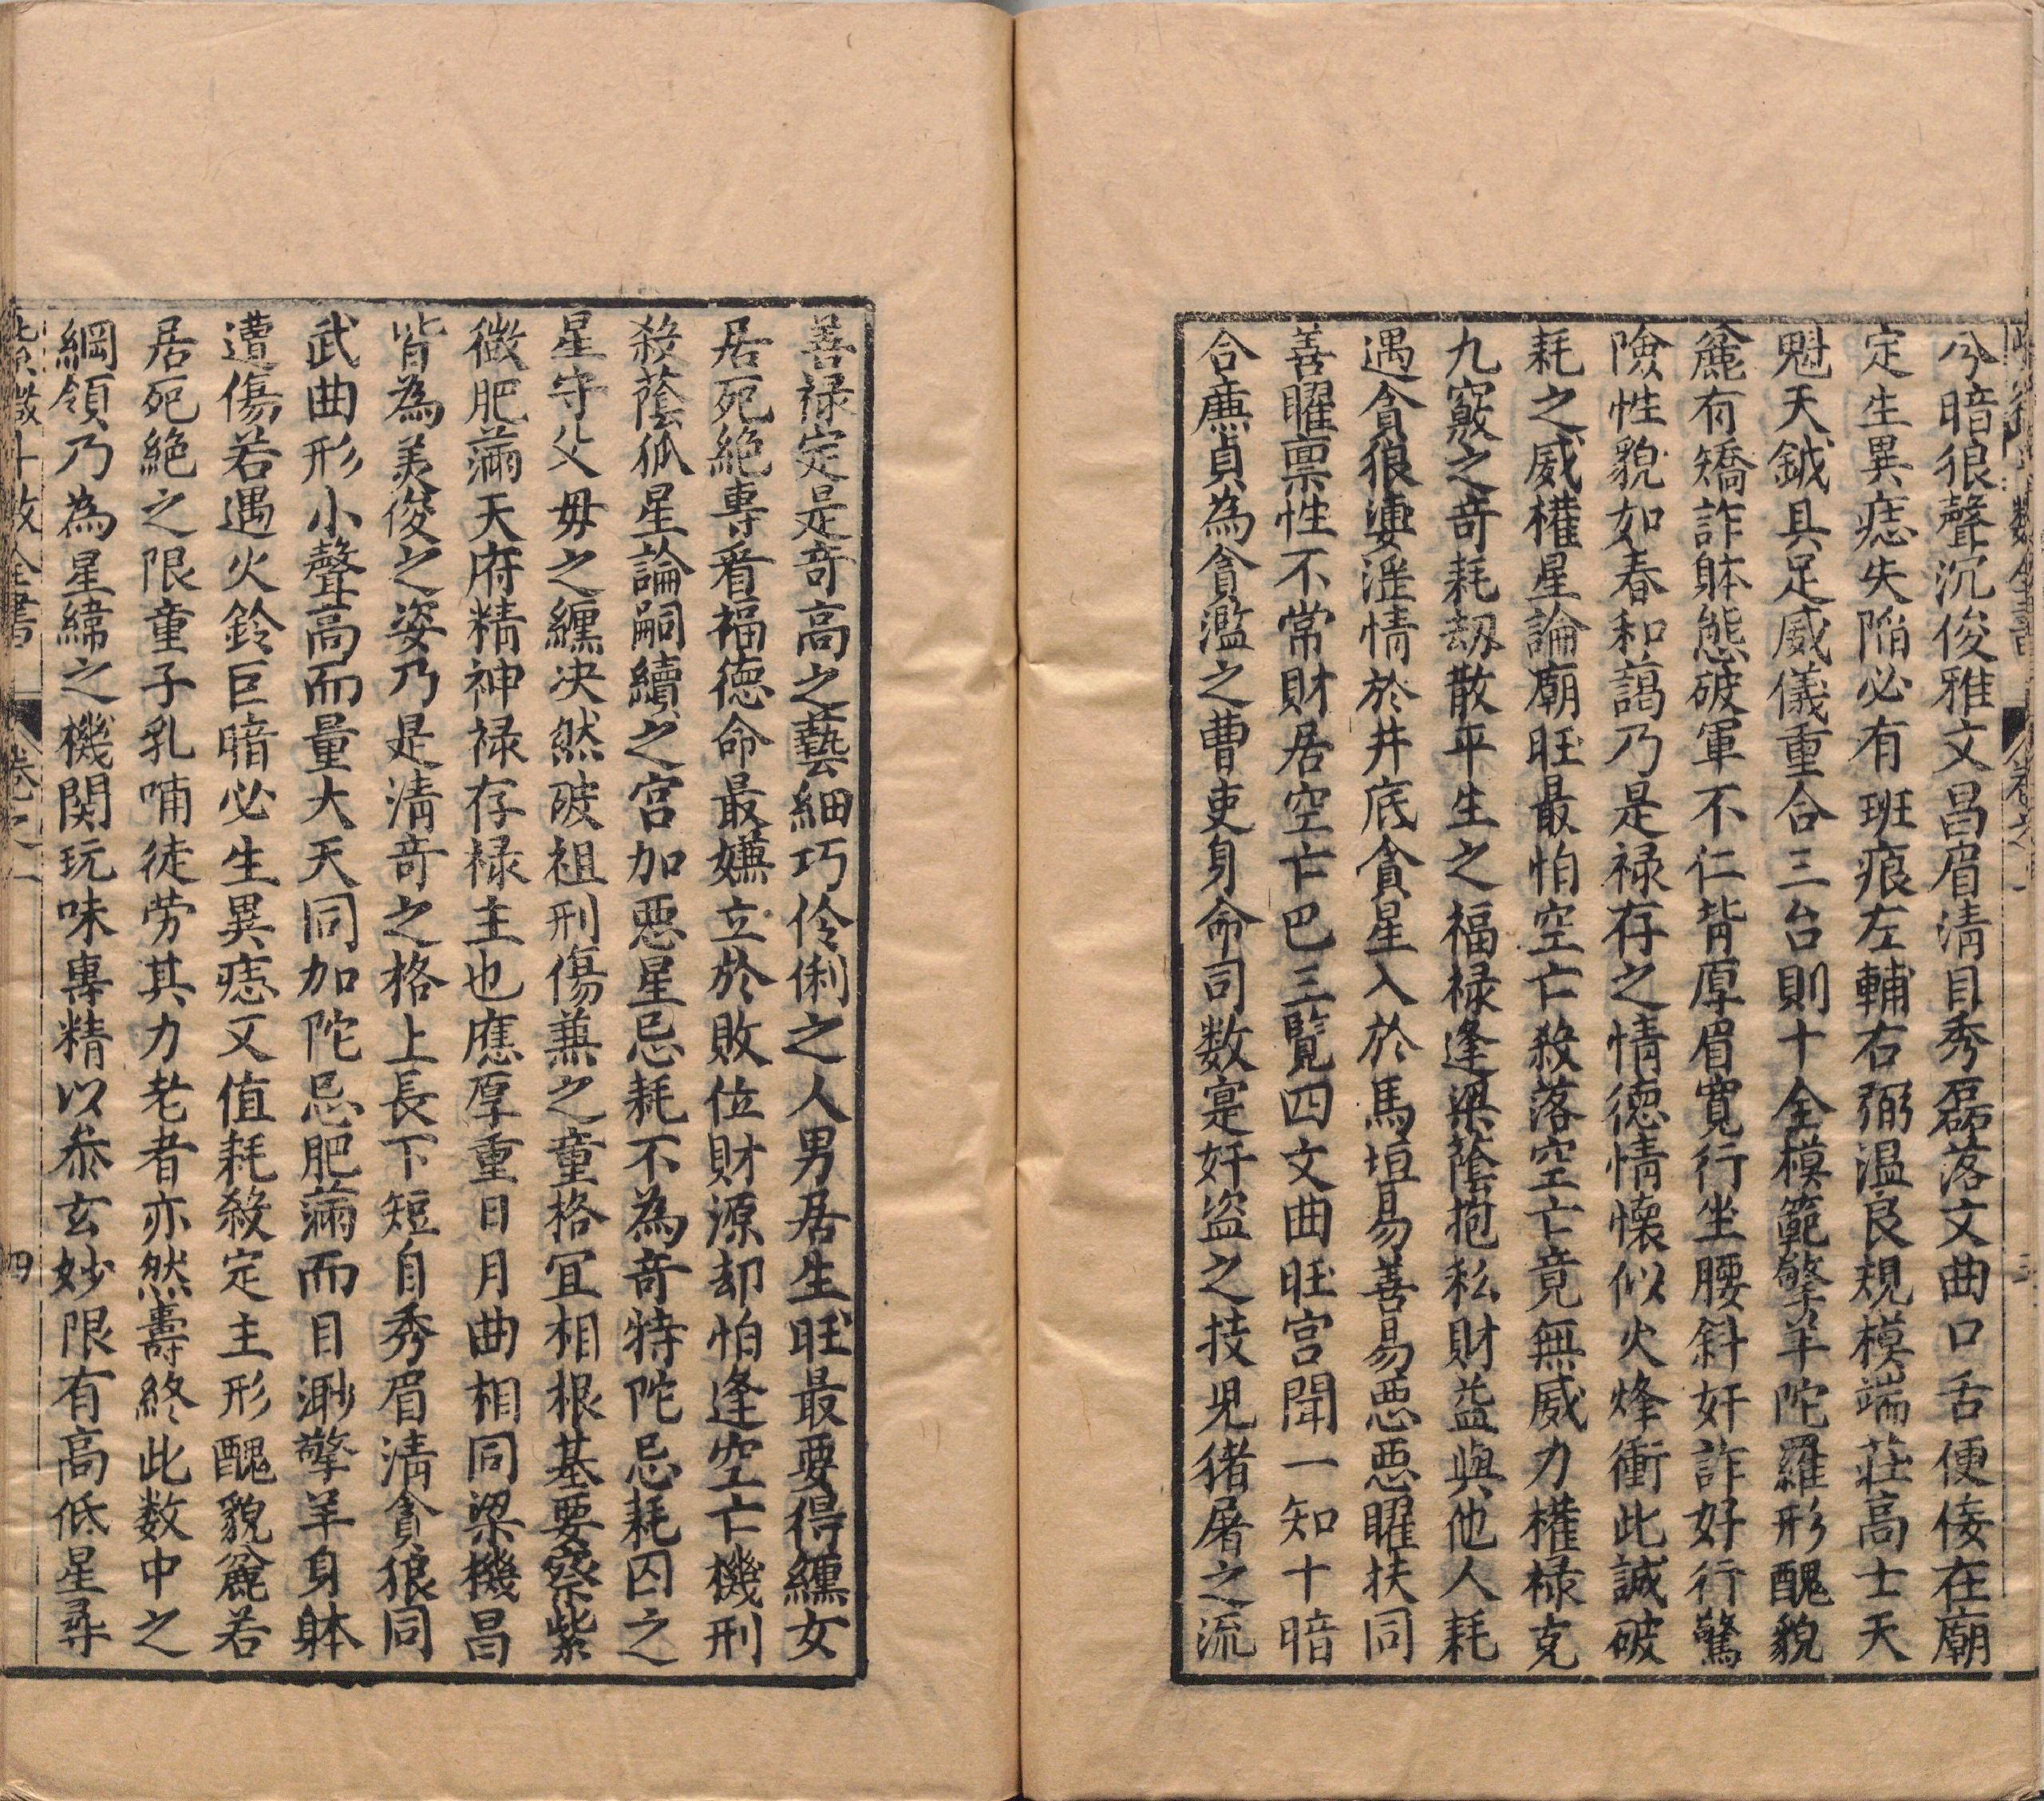 兮暗狼聲沉俊雅文昌眉清目秀磊落文曲口舌便佞在廟
定生異痣失陷必有班痕左輔右弼溫良規模端莊高士天
魁天鉞具足威儀重合三台則十全模範擎羊陀羅形醜貌
麄有矯詐躰態破軍不仁背厚眉寬行坐腰斜奸詐好行驚
險性貌如春和藹乃是禄存之情德情懷似火烽衝此誠破
耗之威權星論廟旺最怕空亡殺落空亡竟無威力權禄克
九竅之竒耗刼散平生之福禄逢梁蔭抱私財益與他人耗
遇貪狼淫情於井底貪星入於馬垣易善易惡惡曜扶同
善曜禀性不常財居空亡巴三覽四文曲旺宮聞一知十暗
合廉貞為貪濫之曹吏身命司数寔奸盜之技児猪屠之流
善禄定是竒高之藝細巧伶俐之人男居生旺最要得纏女
居死絶專看福德命最嫌立於敗位財源却怕逢空亡機刑
殺蔭孤星論嗣續之宮加惡星忌耗不為竒特陀忌耗囚之
星守父毋之纏决然破祖刑傷兼之童格冝相根基要察紫
微肥滿天府精神禄存禄主也應厚重日月曲相同梁機昌
皆為美俊之姿乃是清竒之格上長下短目秀眉清貪狼同
武曲形小聲高而量大天同加陀忌肥滿而目渺擎羊身躰
遭傷若遇火鈴巨暗必生異痣又值耗殺定主形醜貌麄若
居死絶之限童子乳哺徒劳其力老者亦然壽終此数中之
綱領乃為星緯之機関玩味專精以叅玄妙限有高低星尋
紫微斗数全書 卷之一 四